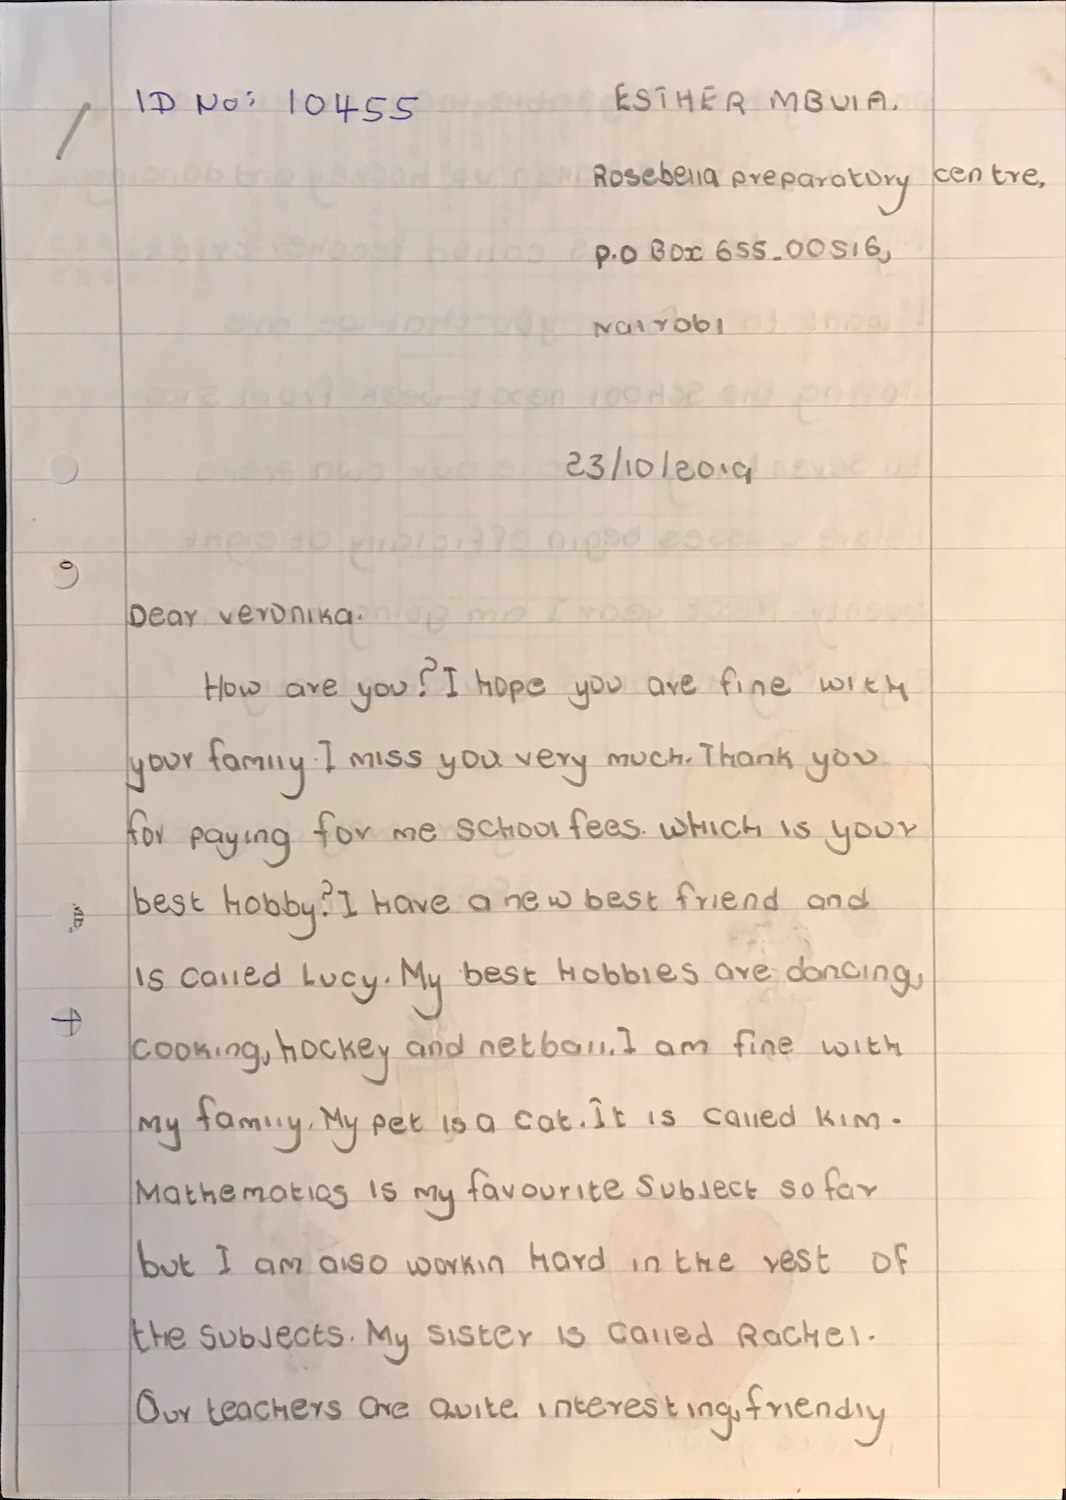 ID No: 10455
ESTHER MBUIA.
Rosebella preparatory centre,
P.O Box 655-00516,
Nairobi
23/10/2019
Dear veronika.
How are you? I hope you are fine with
your family. I miss you very much. Thank you
for paying for me school fees. which is your
best hobby? I have a new best friend and
is called Lucy. My best hobbies are dancing,
cooking, hockey and netball. I am fine with
my family. My pet is a cat. It is called kim.
Mathematics is my favourite subject so far
but I am also workin hard in the rest of
the subjects. My sister is called Rachel.
Our teachers are quite interesting, friendly